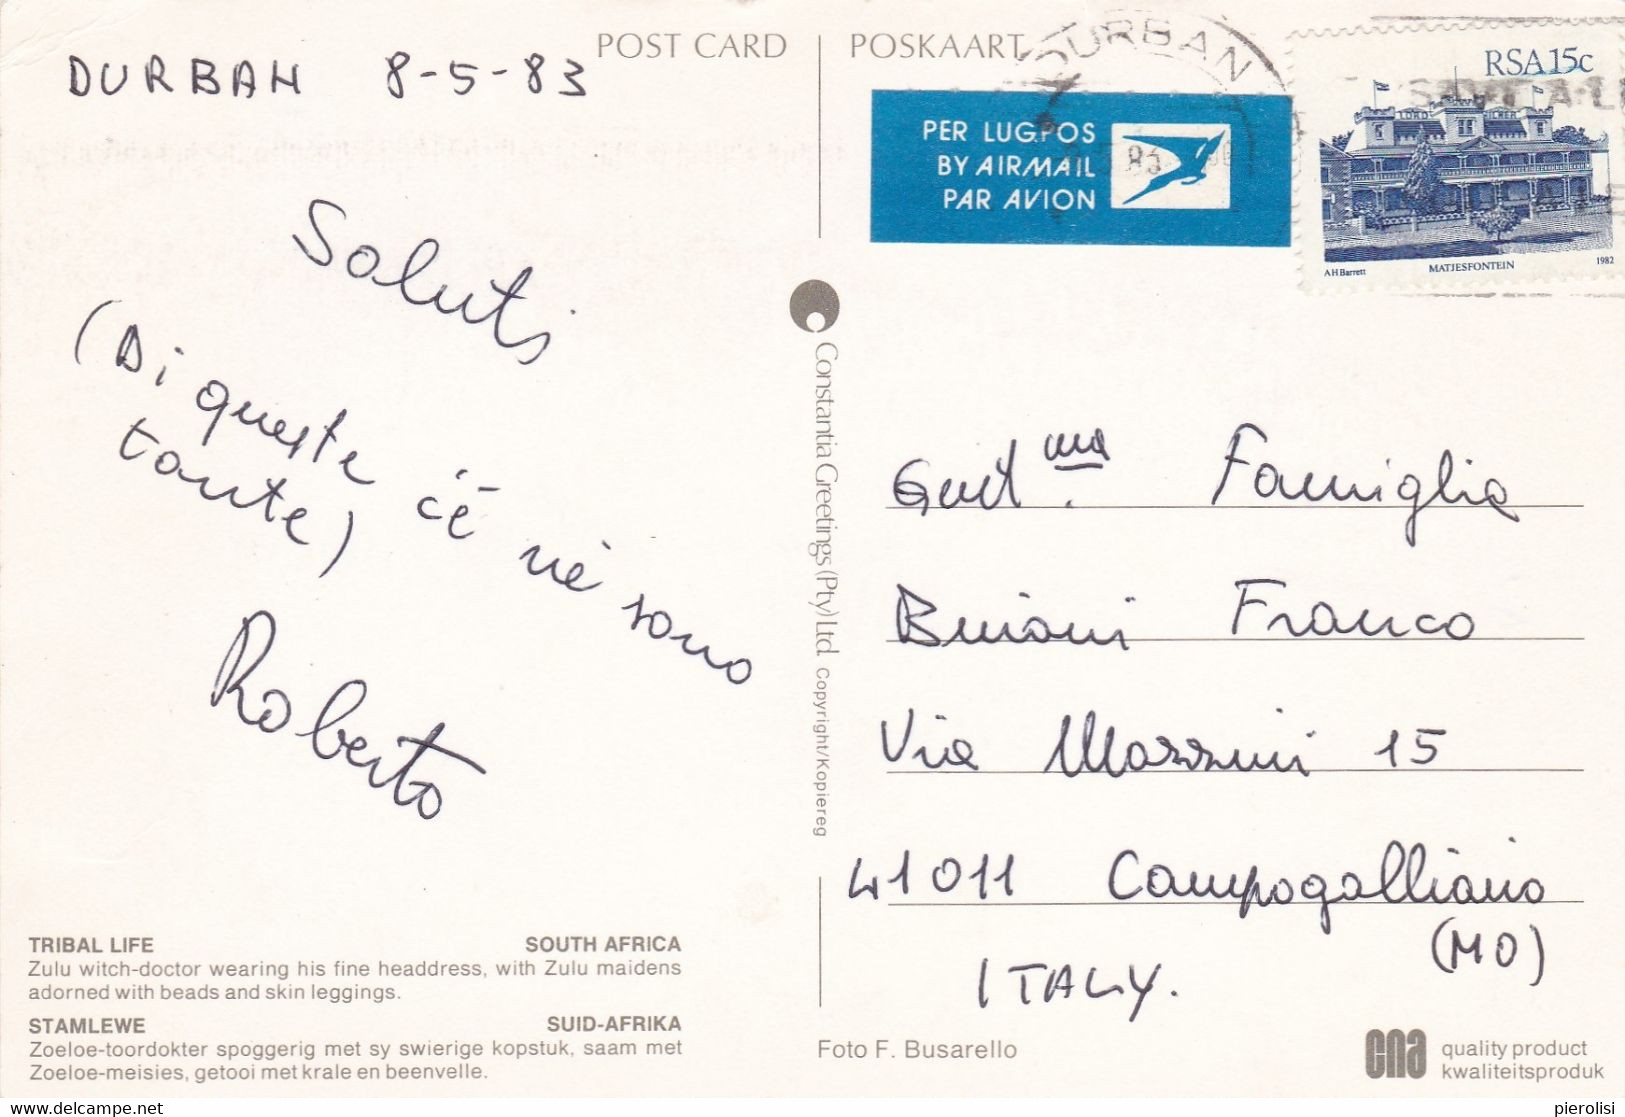 POST CARD
POSKAART
DURBAN 8-5-83
Saluti
(Di queste c'é né sono
tante)
Roberto
TRIBAL LIFE SOUTH AFRICA
Zulu witch-doctor wearing his fine headdress, with Zulu maidens
adorned with beads and skin leggings.
STAMLEWE SUID-AFRIKA
Zoeloe-toordokter spoggerig met sy swierige kopstuk, saam met
Zoeloe-meisies, getooi met krale en beenvelle.
Constantia Greetings (Pty) Ltd. Copyright/Kopiereg
DURBAN
PER LUGPOS
BY AIRMAIL
PAR AVION
83
RSA 15c
SAVE A LI
LORD MILNER
A H Barrett MATJESFONTEIN 1982
Gent.ma Famiglia
Buioni Franco
Via Mazzini 15
41011 Campogalliano
(MO)
ITALY.
Foto F. Busarello
cna
quality product
kwaliteitsproduk
pierolisi